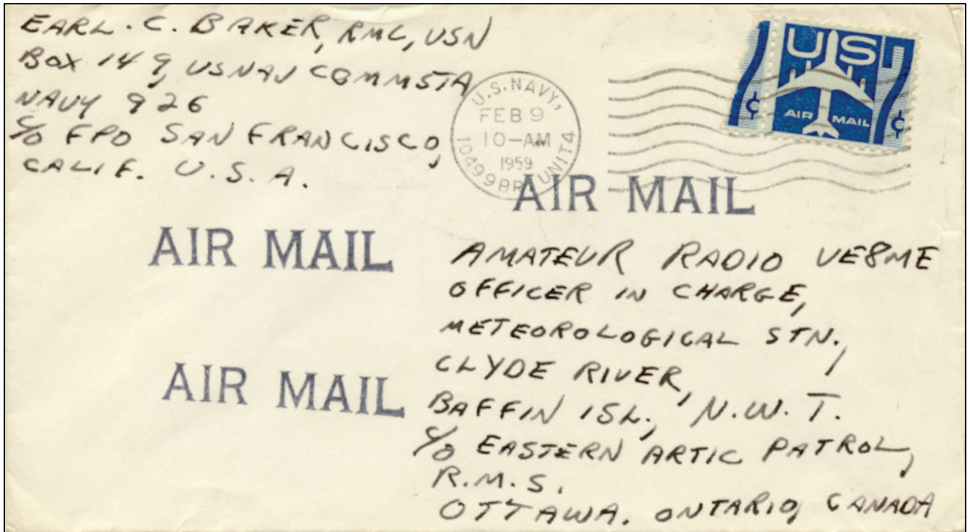 EARL. C. BAKER, RMC, USN
BOX 149, USNAV COMMSTA
NAVY 926
c/o FPO SAN FRANCISCO,
CALIF. U.S.A.
U.S. NAVY,
FEB 9
10-AM
1959
10499 BR. UNIT 4
US
7¢ 7¢
AIR MAIL
AIR MAIL
AIR MAIL
AIR MAIL
AMATEUR RADIO VE8ME
OFFICER IN CHARGE,
METEOROLOGICAL STN.,
CLYDE RIVER,
BAFFIN ISL., N.W.T.
c/o EASTERN ARTIC PATROL,
R.M.S.
OTTAWA. ONTARIO, CANADA